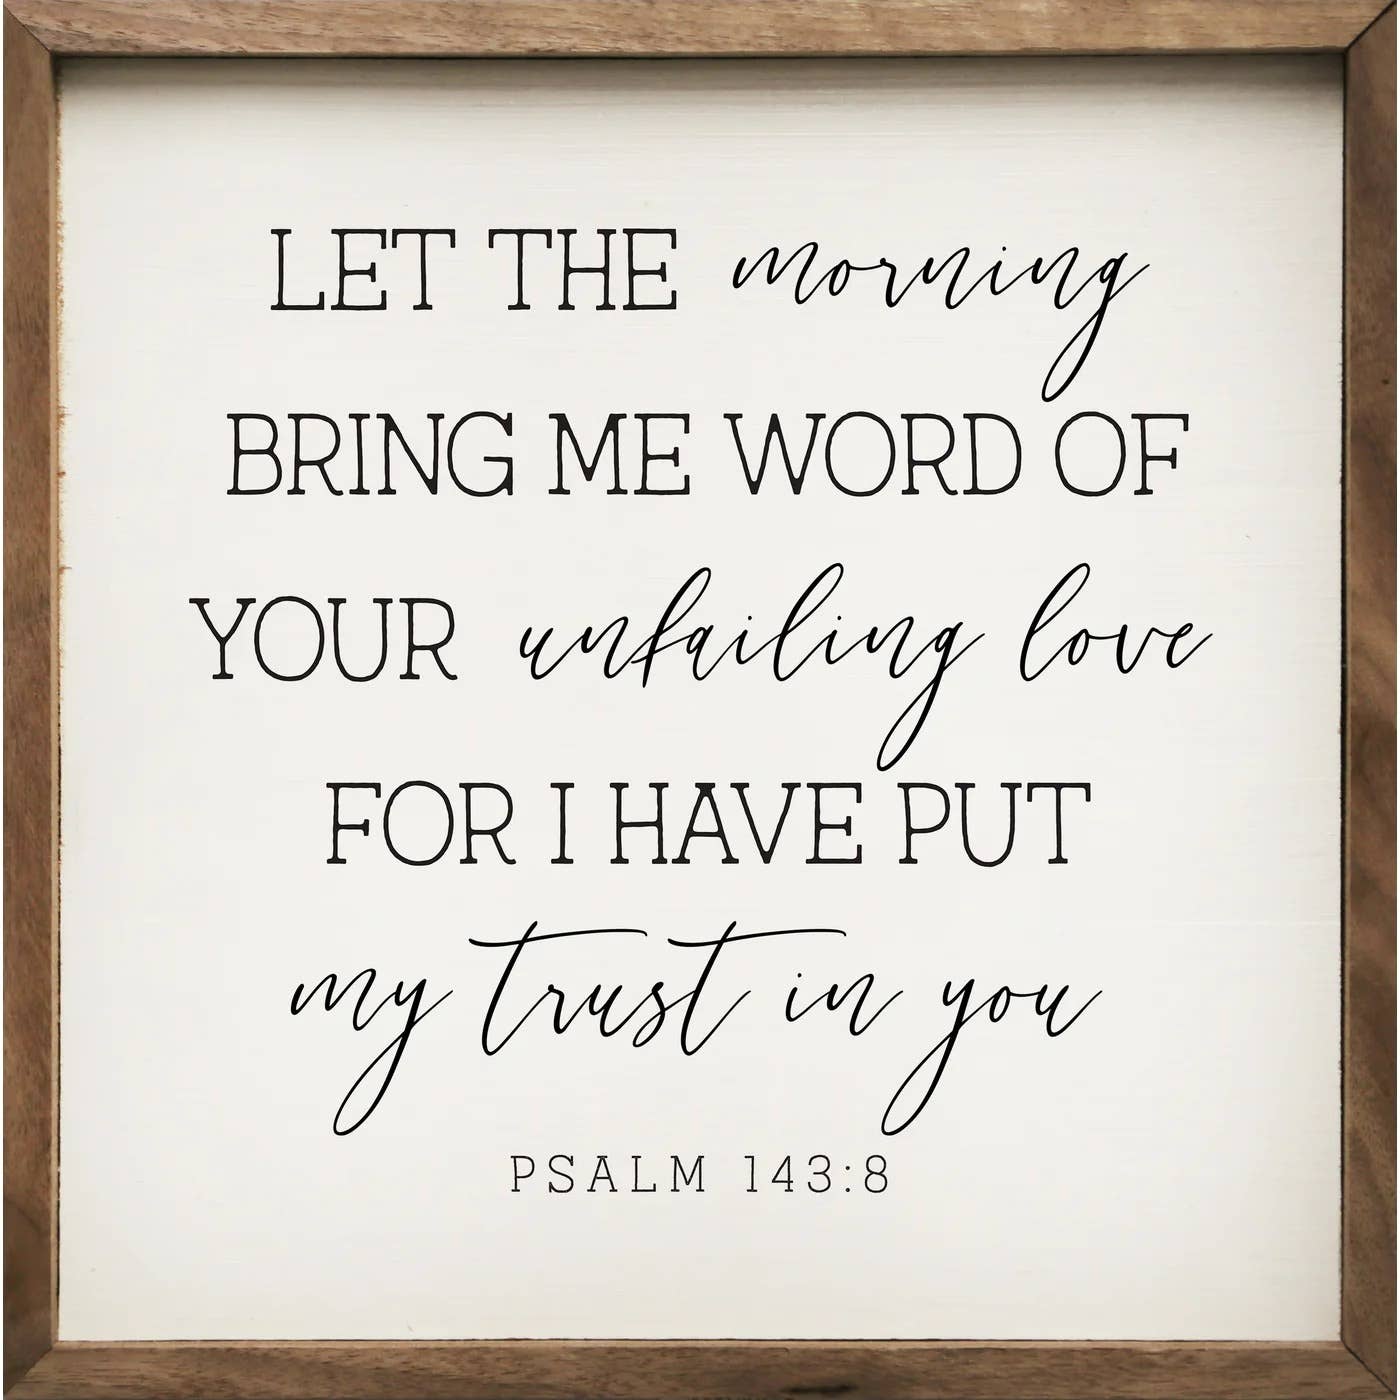 LET THE morning
BRING ME WORD OF
YOUR unfailing love
FOR I HAVE PUT
my trust in you
PSALM 143:8